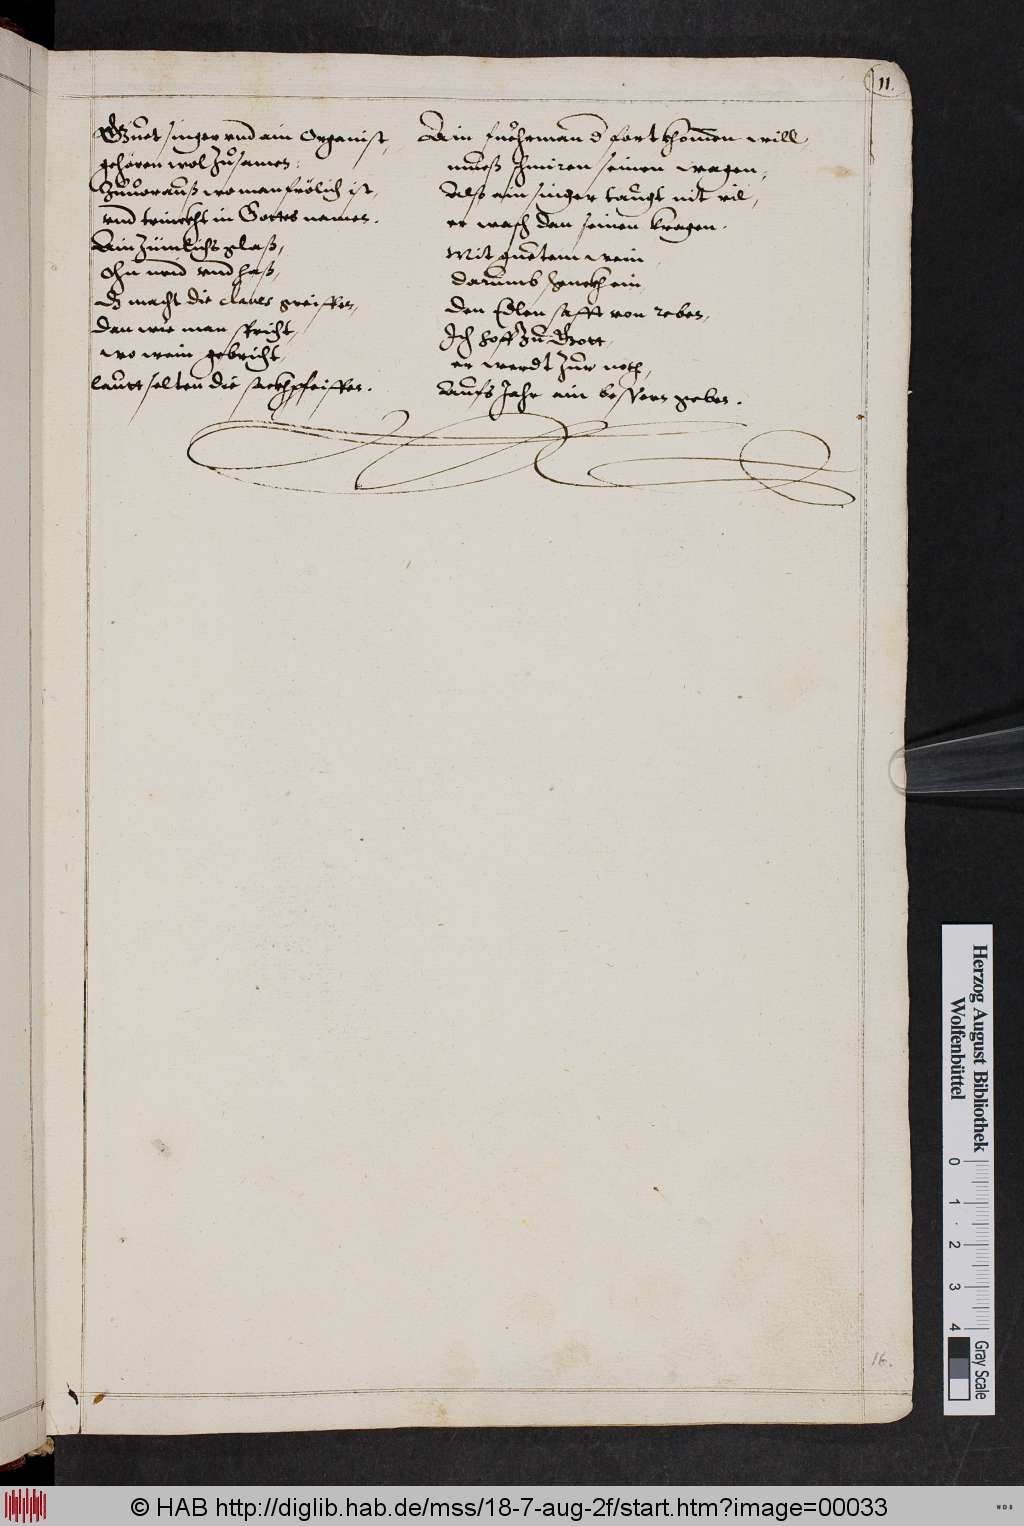 11.
Guet singer vnd ain Organist,
gehören wol zůsamen,
Zůuorauß wo man frölich ist,
vnd trinckht in Gottes namen.
Ain zimlichs glaß,
ohn neid vnd haß,
Dz macht die claues greiffen,
dan wie man spricht,
wo wein gebricht,
laut selten die sackhpfeiffen.
Ain fuehrman d fort khomen will
mueß schmiren seinen wagen,
Also ain singer taugt nit vil,
er wasch dan seinen kragen.
Mit guetem wein,
darumb schenckh ein,
den Edlen safft von reben,
Ich hoff zu Gott,
er werdt zur noth,
Aufs Jahr ain bessern geben.
16.
Herzog August Bibliothek
Wolfenbüttel
0 1 2 3 4
Gray Scale
© HAB http://diglib.hab.de/mss/18-7-aug-2f/start.htm?image=00033